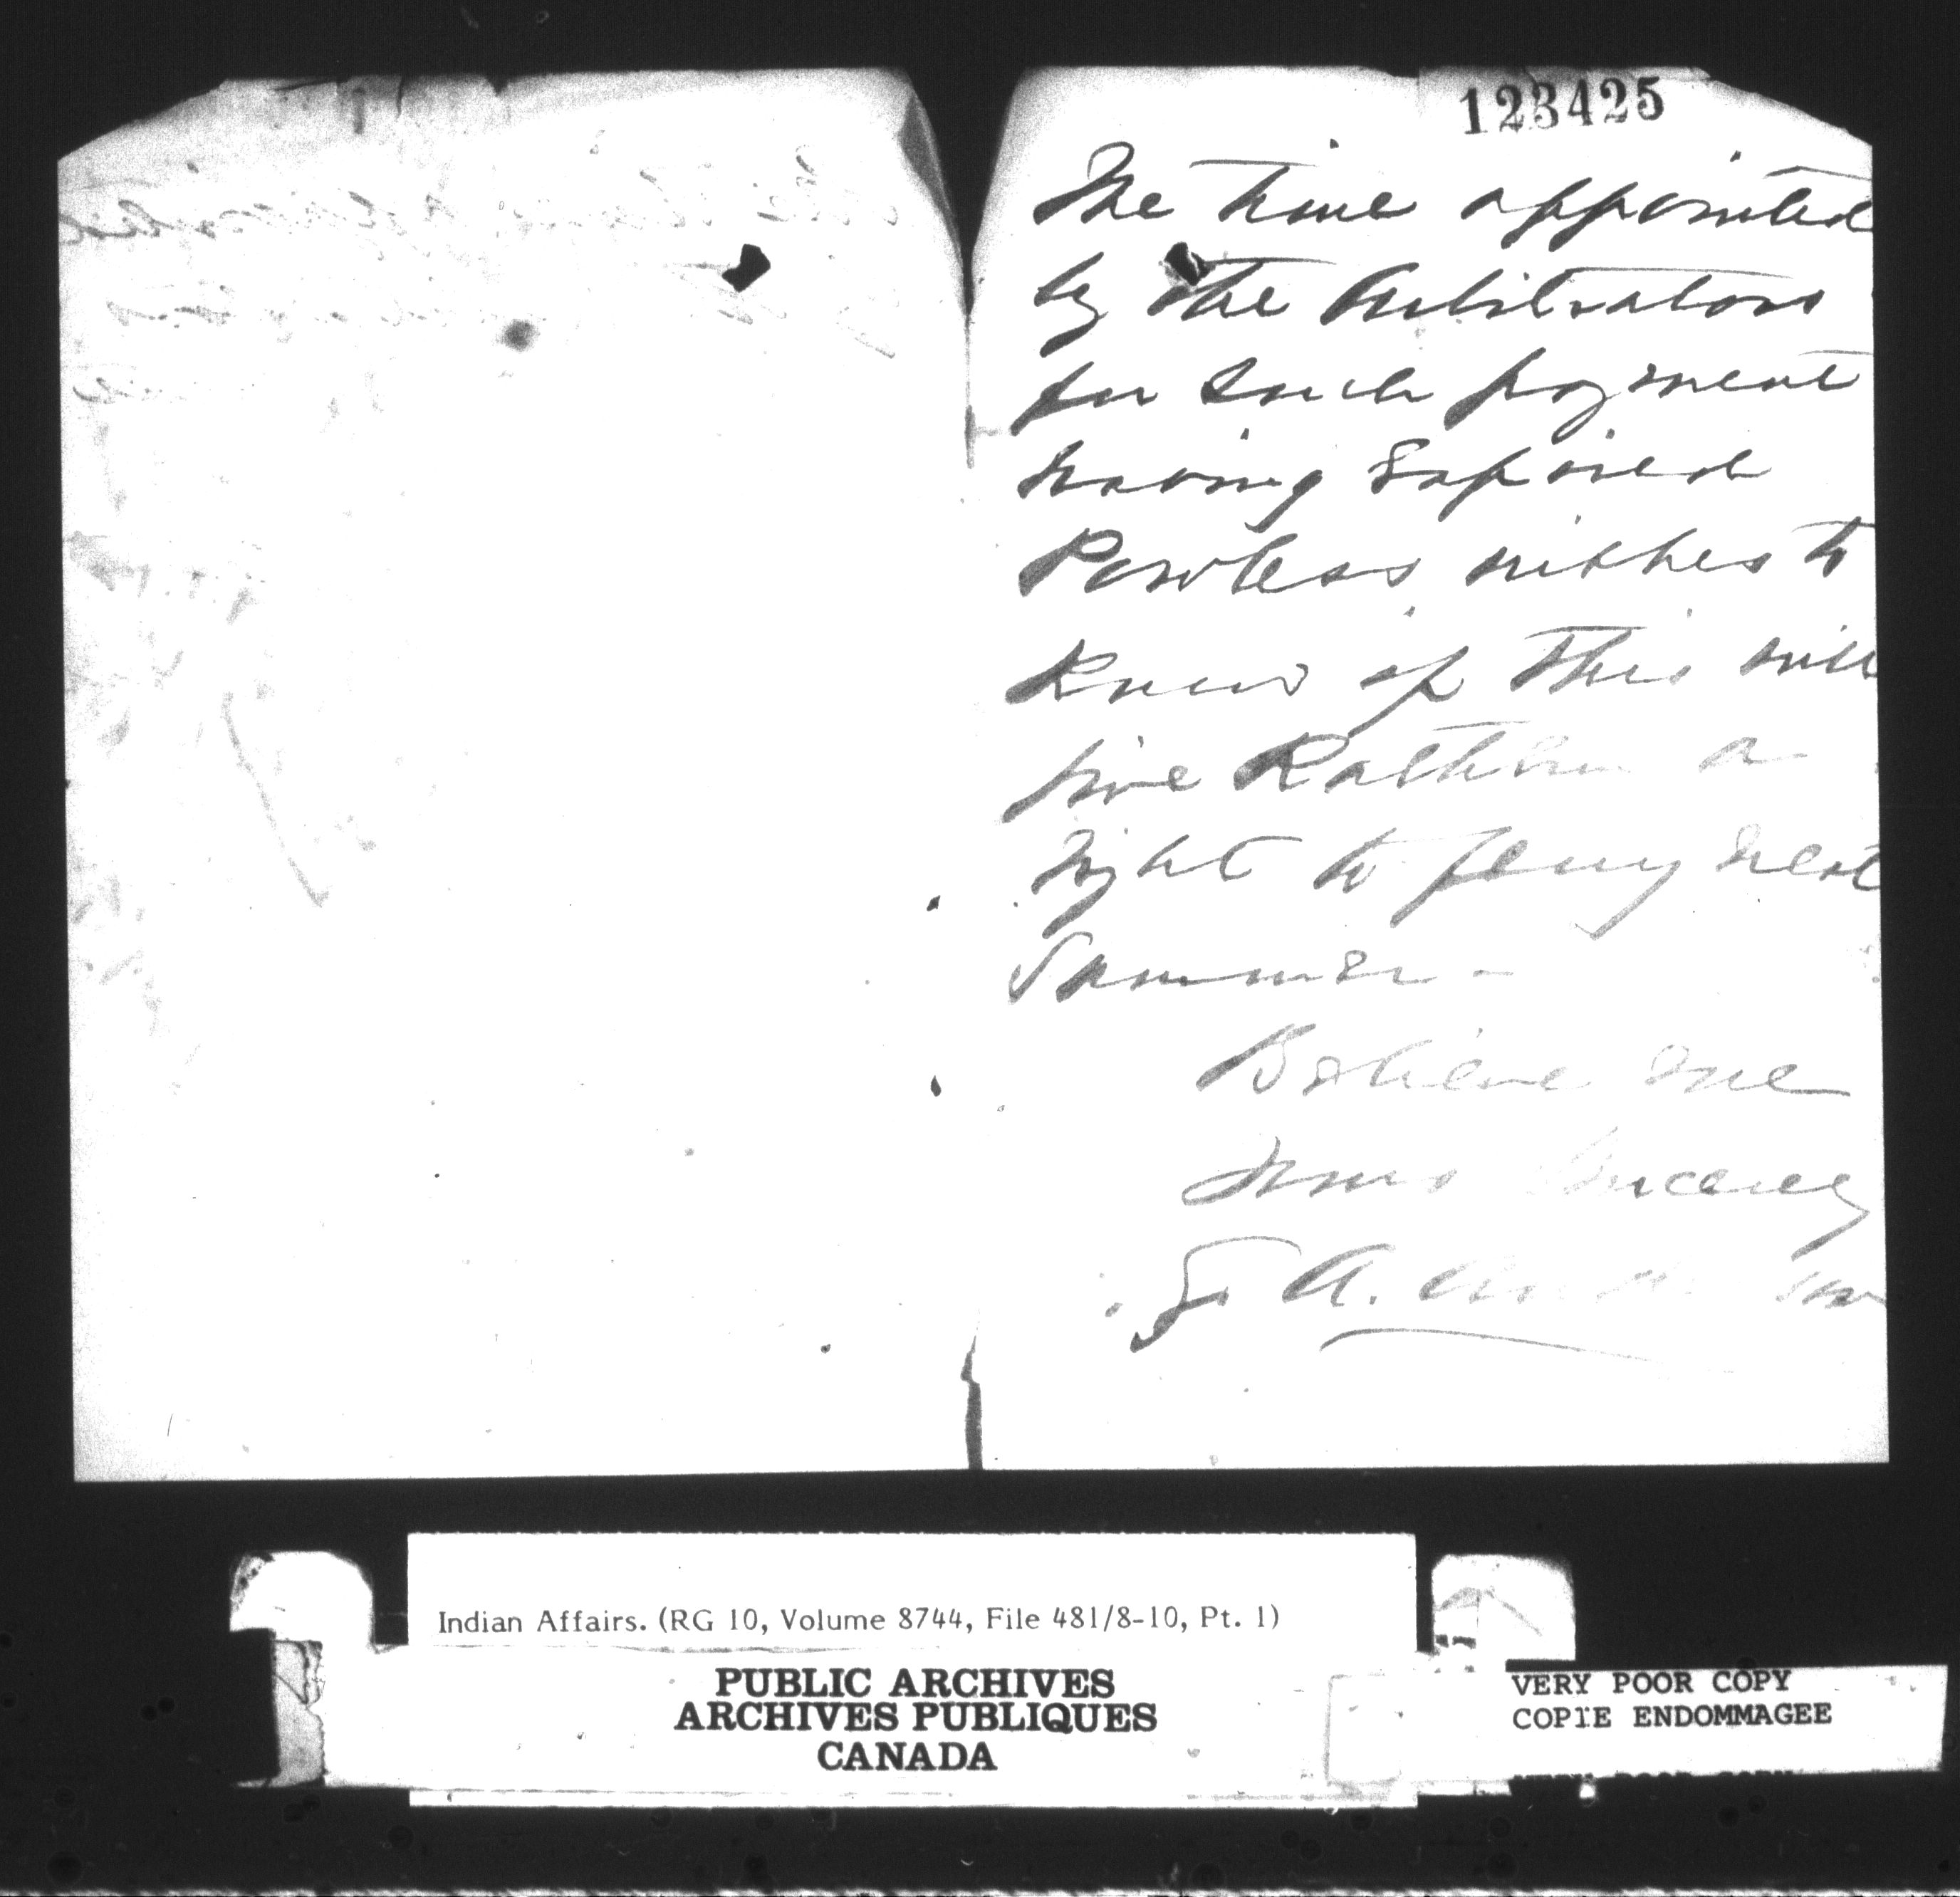 123425
The time appointed
by the Arbitrators
for such payment
having Expired
Powless wishes to
Know if this will
give Rathbun a
right to ferry next
Summer -
Believe me
Yours Sincerely
A.
Indian Affairs. (RG 10, Volume 8744, File 481/8-10, Pt. 1)
PUBLIC ARCHIVES
ARCHIVES PUBLIQUES
CANADA
VERY POOR COPY
COPIE ENDOMMAGEE